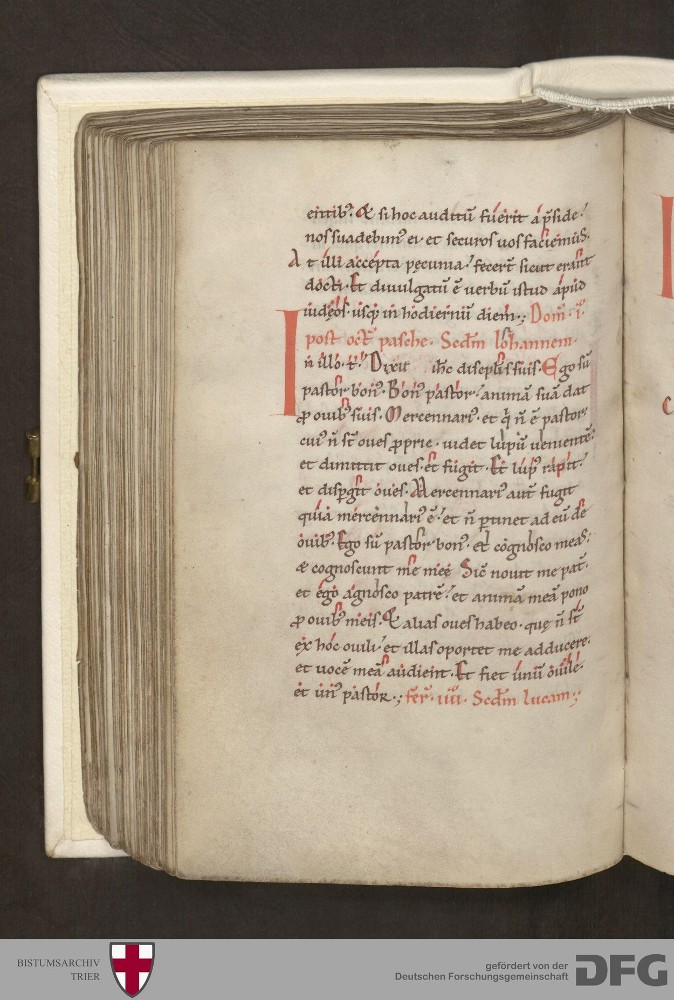 entib᷒. & si hoc auditū fuerit a p̄side.
nos suadebim᷒ ei et securos uos faciemus.
At illi accepta pecunia. fecer̄t sicut erant
docti. Et diuulgatū ē uerbū istud apud
iudęos. usq; in hodiernū diem.; Dom̄. i.
post oct̄ pasche. Scd̄m Iohannem.
In illo. t̄. Dixit ih̄c discipl̄is suis. Ego sū
pastor bon᷒. Bon᷒ pastor. animā suā dat
ꝓ ouib᷒ suis. Mercennari᷒. et q̇ n̄ ē pastor.
cui᷒ n̄ st̄ oues ꝓprie. uidet lupū uenientē.
et dimittit oues. et fugit. Et lup᷒ rapit.
et disꝑgit oues. Mercennari᷒ aut̄ fugit
quia mercennari᷒ ē. et n̄ ꝑtinet ad eū de
ouib᷒. Ego sū pastor bon᷒. et cognosco meas.
& cognoscunt me meę Sic̄ nouit me pat̄.
et ego agnosco patrē. et animā meā pono
ꝓ ouib᷒ meis. & alias oues habeo. quę n̄ st̄
ex hoc ouili. et illas oportet me adducere.
et uocē meā audient. Et fiet unū ouile.
et un᷒ pastor.; fer̄. iiii. Scd̄m lucam.;
BISTUMSARCHIV
TRIER
gefördert von der
Deutschen Forschungsgemeinschaft
DFG